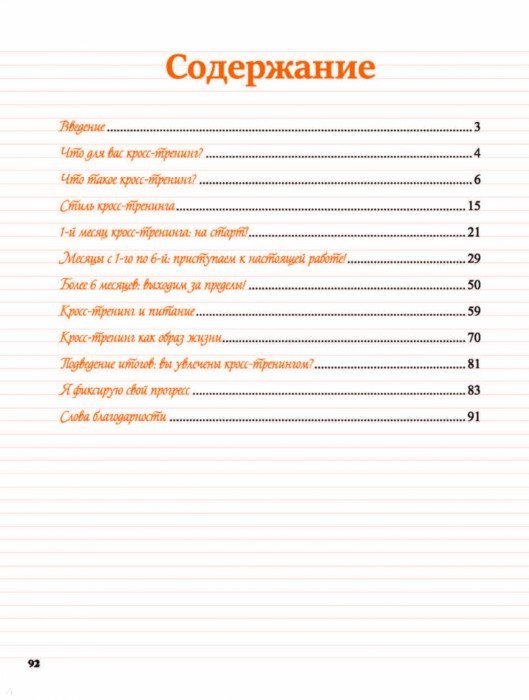 Содержание
Введение 3
Что для вас кросс-тренинг? 4
Что такое кросс-тренинг? 6
Стиль кросс-тренинга 15
1-й месяц кросс-тренинга: на старт! 21
Месяцы с 1-го по 6-й: приступаем к настоящей работе! 29
Более 6 месяцев: выходим за пределы! 50
Кросс-тренинг и питание 59
Кросс-тренинг как образ жизни 70
Подведение итогов: вы увлечены кросс-тренингом? 81
Я фиксирую свой прогресс 83
Слова благодарности 91
92